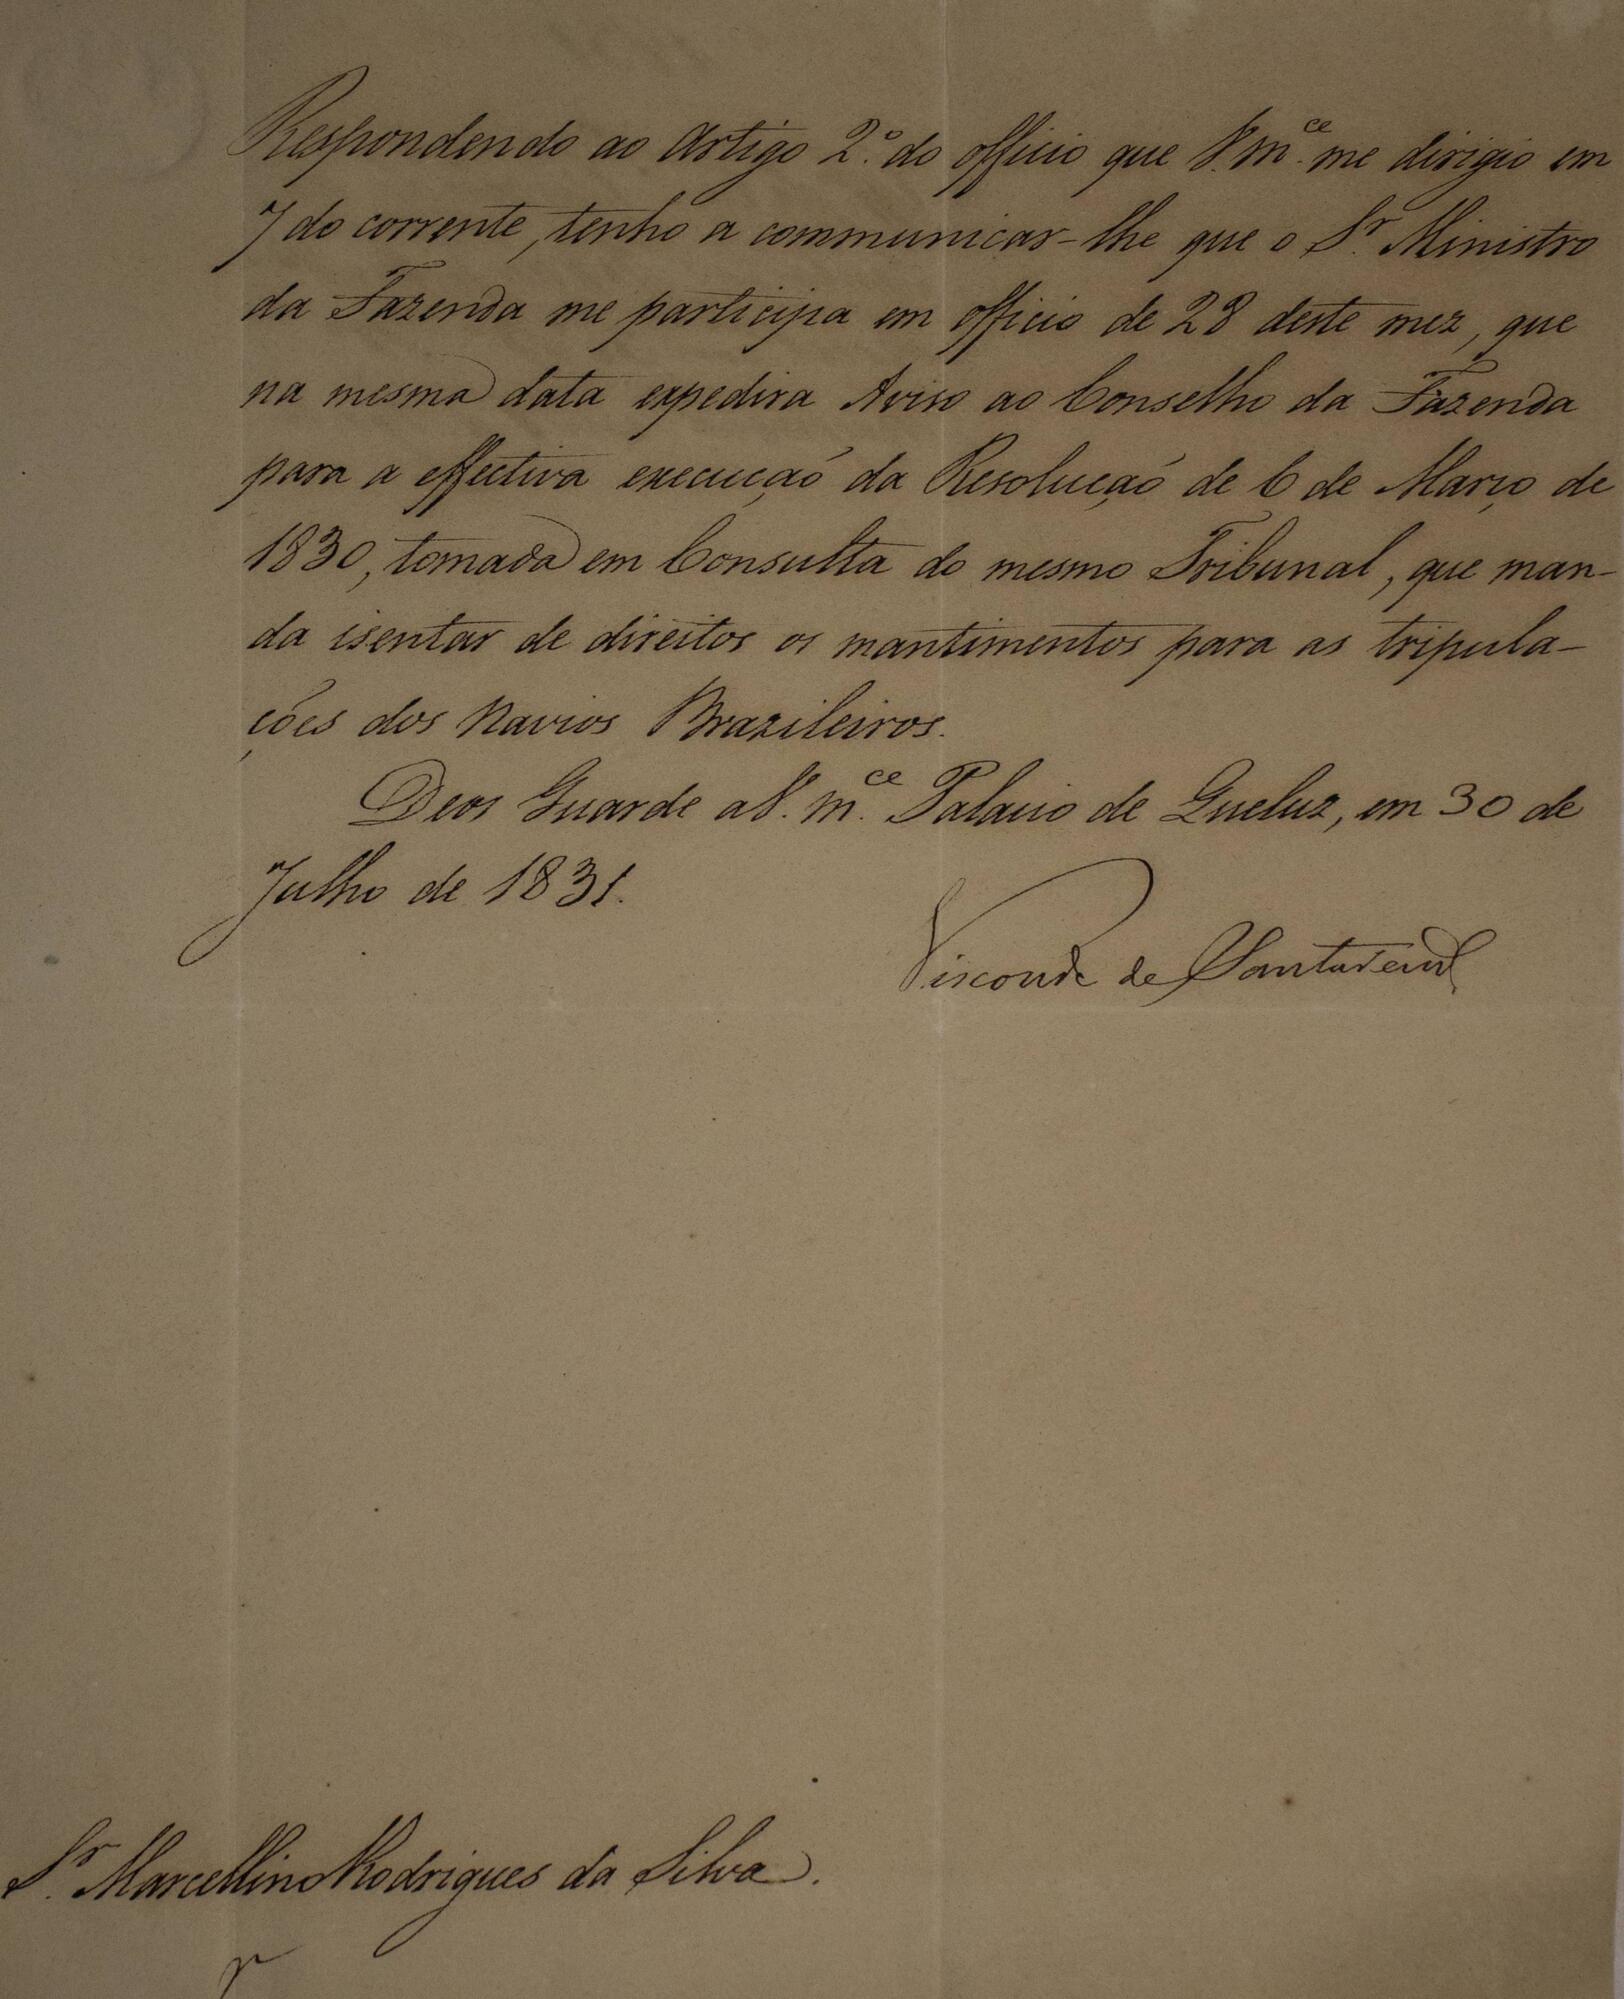 Respondendo ao Artigo 2.º do officio que V. M.ce me dirigio em
7 do corrente, tenho a communicar-lhe que o Sr. Ministro
da Fazenda me participa em officio de 28 deste mez, que
na mesma data expedira Aviso ao Conselho da Fazenda
para a effectiva execuçaõ da Resoluçaõ de 6 de Março de
1830, tomada em Consulta do mesmo Tribunal, que man-
da isentar de direitos os mantimentos para as tripula-
ções dos Navios Brazileiros.
Deos Guarde a V. M.ce Palacio de Queluz, em 30 de
Julho de 1831.
Visconde de Santarem
Sr. Marcellino Rodrigues da Silva.